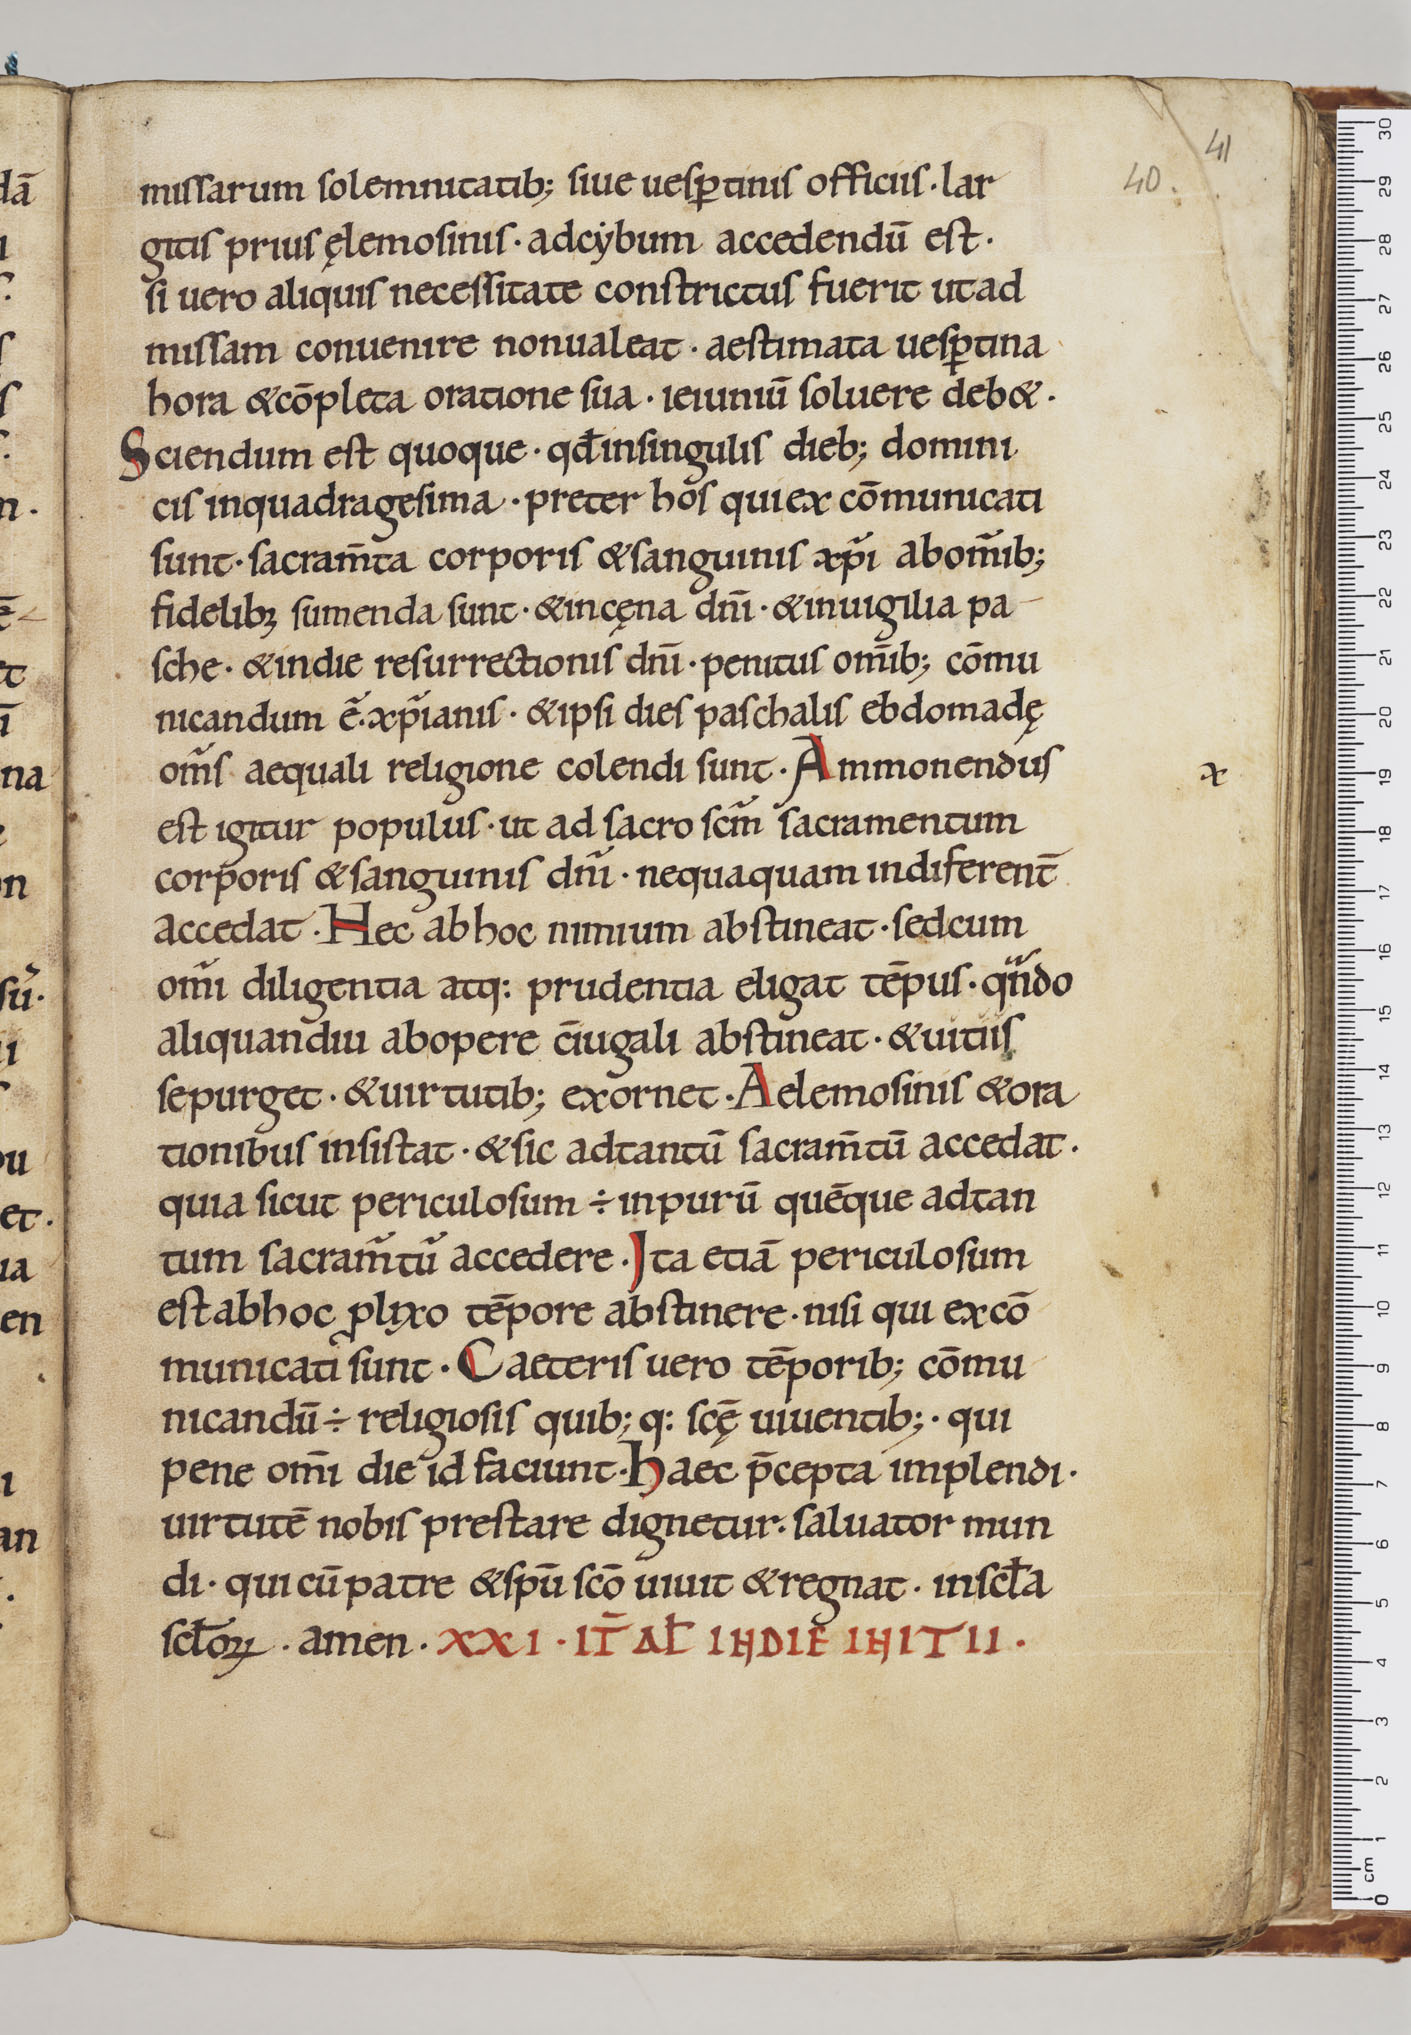 41
40.
missarum solemnitatib; siue uesꝑtinis officiis · lar
gitis prius ęlemosinis · adcẏbum accedendū est ·
si uero aliquis necessitate constrictus fuerit utad
missam conuenire nonualeat · aestimata uesꝑtina
hora &cōpleta oratione sua · ieiuniū soluere deb& ·
Sciendum est quoque · qđ insingulis dieb; domini
cis inquadragesima · preter hos quiex cōmunicati
sunt · sacram̄ta corporis &sanguinis xp̄i abom̄ib;
fidelibꝫ sumenda sunt · &incęna dn̄i · &inuigilia pa
sche · &indie resurrectionis dn̄i · penitus om̄ib; cōmu
nicandum ē · xp̄ianis · &ipsi dies paschalis ebdomadę
om̄s aequali religione colendi sunt · Ammonendus
x
est igitur populus · ut ad sacro scm̄ sacramentum
corporis &sanguinis dn̄i · nequaquam indiferent̄
accedat · Nec abhoc nimium abstineat · sedcum
om̄i diligentia atq: prudentia eligat tēpus · qn̄do
aliquandiu abopere c̄iugali abstineat · &uitiis
sepurget · &uirtutib; exornet · Aelemosinis &ora
tionibus insistat · &sic adtantū sacram̄tū accedat ·
quia sicut periculosum ÷ inpurū quēque adtan
tum sacram̄tū accedere · Ita etiā periculosum
est abhoc ꝓlixo tēpore abstinere · nisi qui excō
municati sunt · Caeteris uero tēporib; cōmu
nicandū ÷ religiosis quib; q: scę̄ uiuentib; · qui
pene om̄i die id faciunt · Haec p̄cepta implendi ·
uirtutē nobis prestare dignetur · saluator mun
di · qui cū patre &spū scō uiuit &regnat · inscła
scłoꝝ · amen · XXI · IT̄ AŁ INDIE INITII ·